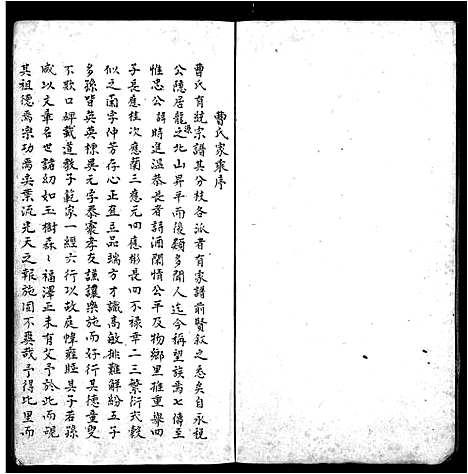 曹氏家乘序
曹氏育競宗譜其分枝各派者有家譜前賢敘之悉矣自永税
公隱居龍之源北山昇平而後頗多聞人迄今稱望族焉七傳至
惟思公詩時庭溫恭長者詩酒閑情公平及物鄉里推重舉四
子長應桂次應蘭三應元四應彬長四不祿幸二三繁衍文毅
似之圖字仲芳存心正直立品端方才識高敏排難解紛五子
多孫皆英英標異元字泰寰孝友謙讓樂施而好行其德童叟
不欺口碑載道教子範家一經六行以故庭幃雍睦其子若孫
咸以文章名世諸幼如玉樹森々福澤正未有艾予於此而覘
其祖德焉宗功焉奕葉流光天之報施固不爽哉予得比里而